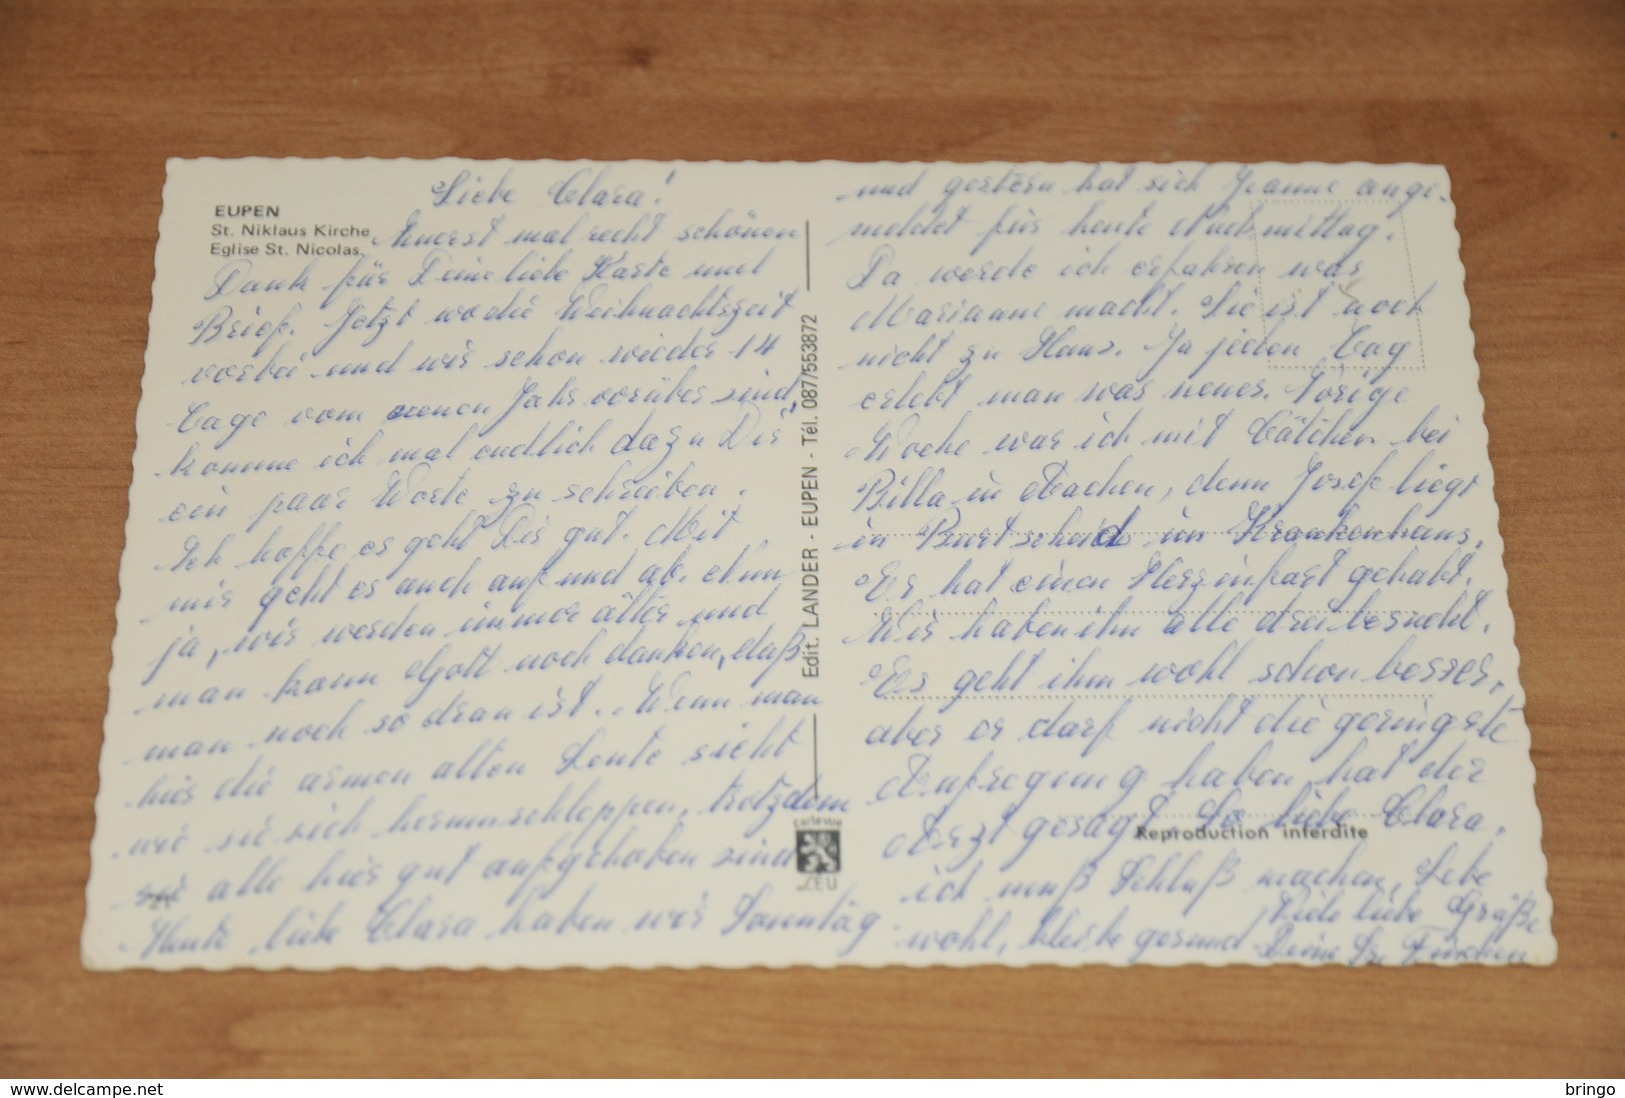 EUPEN
St. Niklaus Kirche
Eglise St. Nicolas.
Liebe Clara!
Zuerst mal recht schönen
Dank für Deine liebe Karte und
Brief. Jetzt wo die Weihnachtszeit
vorbei und wir schon wieder 14
Tage vom neuen Jahr vorüber sind,
komme ich mal endlich dazu Dir
ein paar Worte zu schreiben.
Ich hoffe es geht Dir gut. Mit
mir geht es auch auf und ab. Nun
ja, wir werden immer älter und
man kann Gott noch danken, daß
man noch so dran ist. Wenn man
hier die armen alten Leute sieht
wie sie sich herumschleppen, trotzdem
alle hier gut aufgehoben sind
Heute liebe Clara haben wir Sonntag
Edit. LANDER - EUPEN - Tél. 087/553872
carte vue
und gestern hat sich Jeanne ange-
meldet für heute Nachmittag.
Da werde ich erfahren was
Marianne macht. Sie ist noch
nicht zu Haus. Ja jeden Tag
erlebt man was neues. Vorige
Woche war ich mit Cätchen bei
Billa in Aachen, denn Josef liegt
in Burtscheid im Krankenhaus.
Er hat einen Herzinfart gehabt.
Wir haben ihn alle drei besucht.
Es geht ihm wohl schon besser,
aber er darf nicht die geringste
Aufregung haben, hat der
Arzt gesagt. So liebe Clara,
Reproduction interdite
ich muß Schluß machen, Lebe
wohl, bleibe gesund Viele liebe Grüße
Deine Sr.